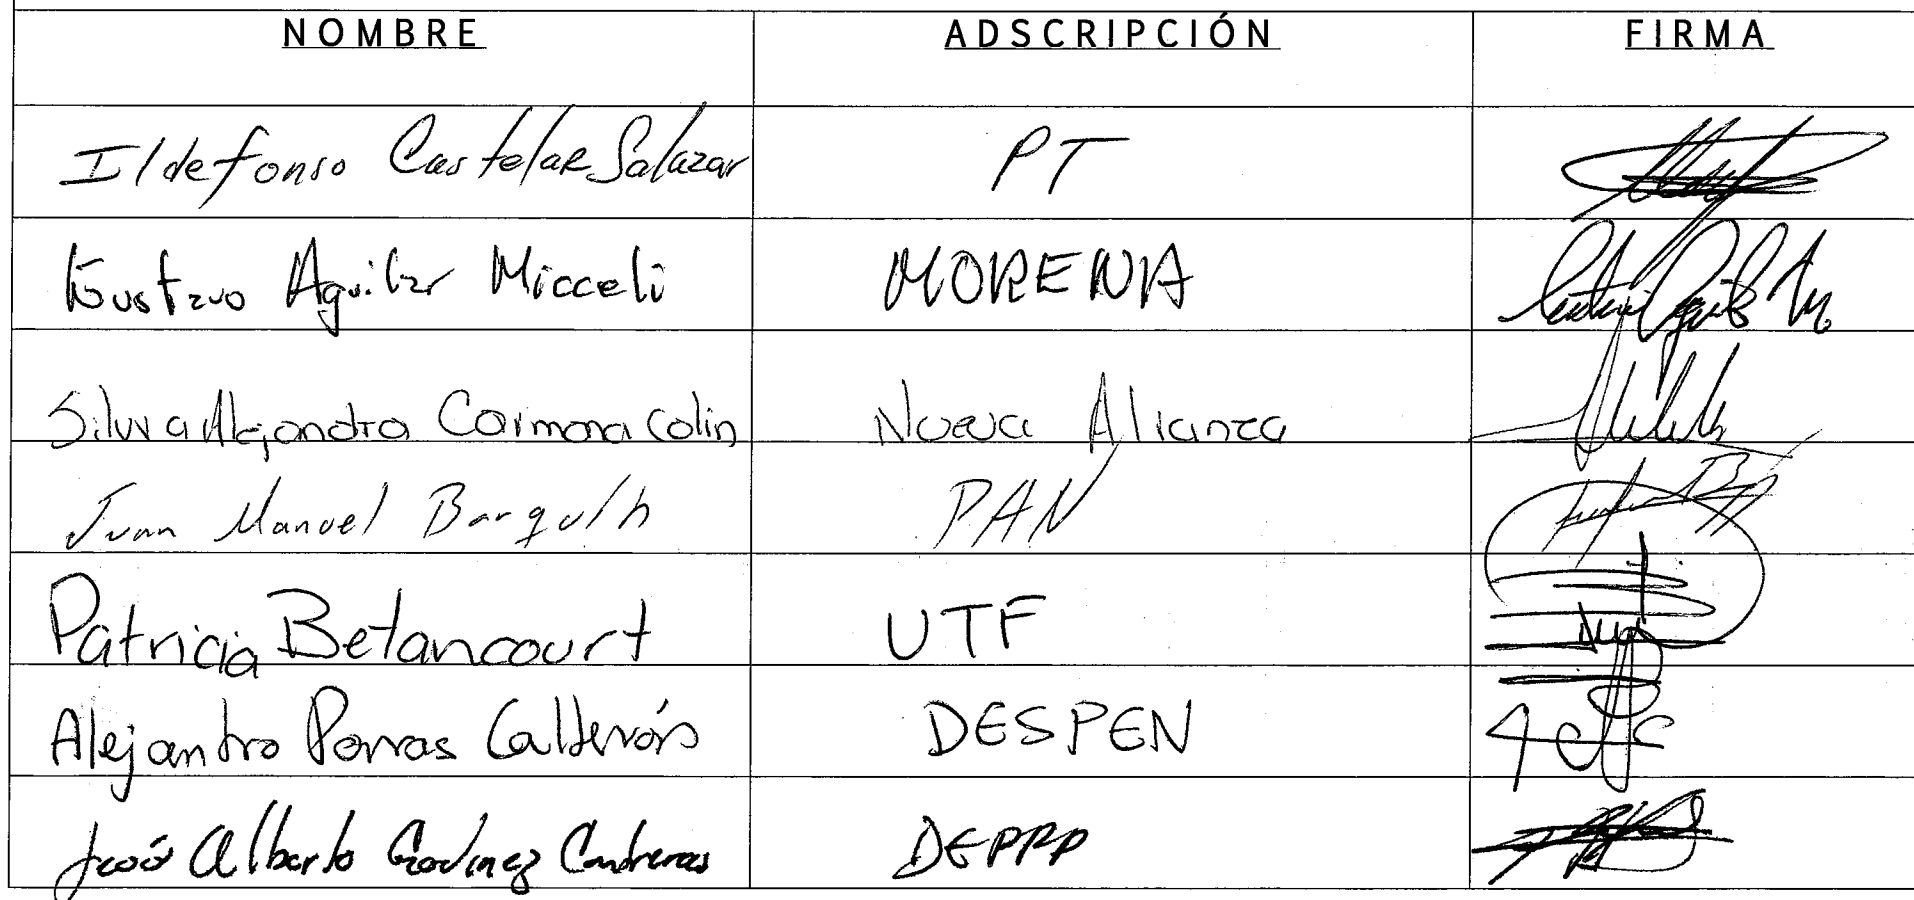 NOMBRE ADSCRIPCIÓN FIRMA
Ildefonso Castelar Salazar PT
Gustavo Aguilar Micceli MORENA
Silvia Alejandra Carmona Colin Nueva Alianza
Juan Manuel PAN
Patricia Betancourt UTF
Alejandro Porras Calderón DESPEN
José Alberto Godinez Contreras DEPPP